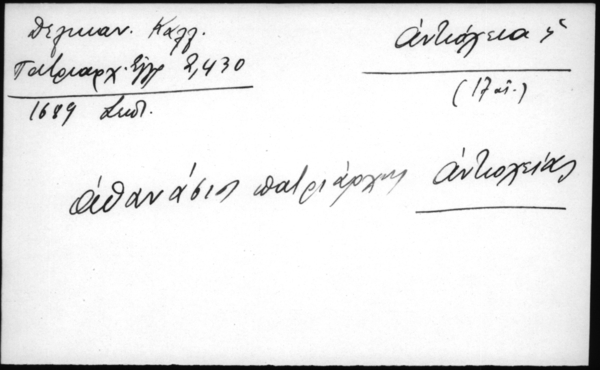 Δελικαν. Καλλ.
Πατριαρχ. Ἔγγρ 2,430
1689 Σεπτ.
Ἀντιόχεια ἡ
(17 αἰ.)
Ἀθανάσιος πατριάρχης Ἀντιοχείας